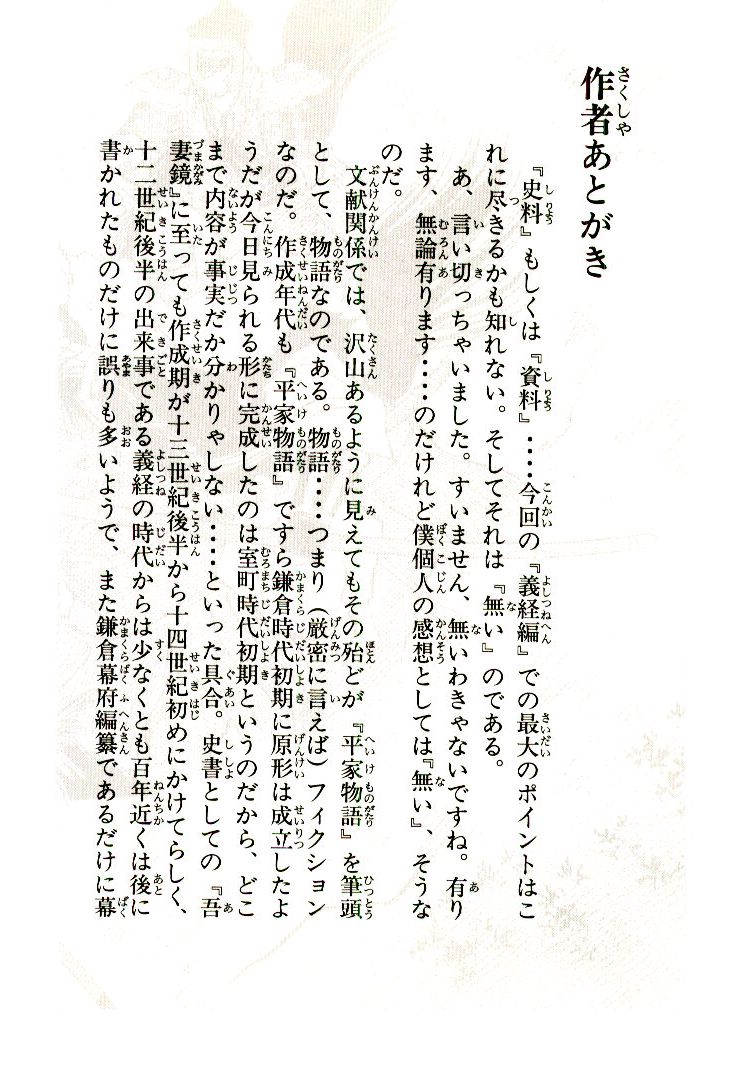 作者あとがき
『史料』もしくは『資料』‥‥今回の『義経編』での最大のポイントはこ
れに尽きるかも知れない。そしてそれは『無い』のである。
あ、言い切っちゃいました。すいません、無いわきゃないですね。有り
ます、無論有ります‥‥のだけれど僕個人の感想としては『無い』、そうな
のだ。
文献関係では、沢山あるように見えてもその殆どが『平家物語』を筆頭
として、物語なのである。物語‥‥つまり（厳密に言えば）フィクション
なのだ。作成年代も『平家物語』ですら鎌倉時代初期に原形は成立したよ
うだが今日見られる形に完成したのは室町時代初期というのだから、どこ
まで内容が事実だか分かりゃしない‥‥といった具合。史書としての『吾
妻鏡』に至っても作成期が十三世紀後半から十四世紀初めにかけてらしく、
十二世紀後半の出来事である義経の時代からは少なくとも百年近くは後に
書かれたものだけに誤りも多いようで、また鎌倉幕府編纂であるだけに幕